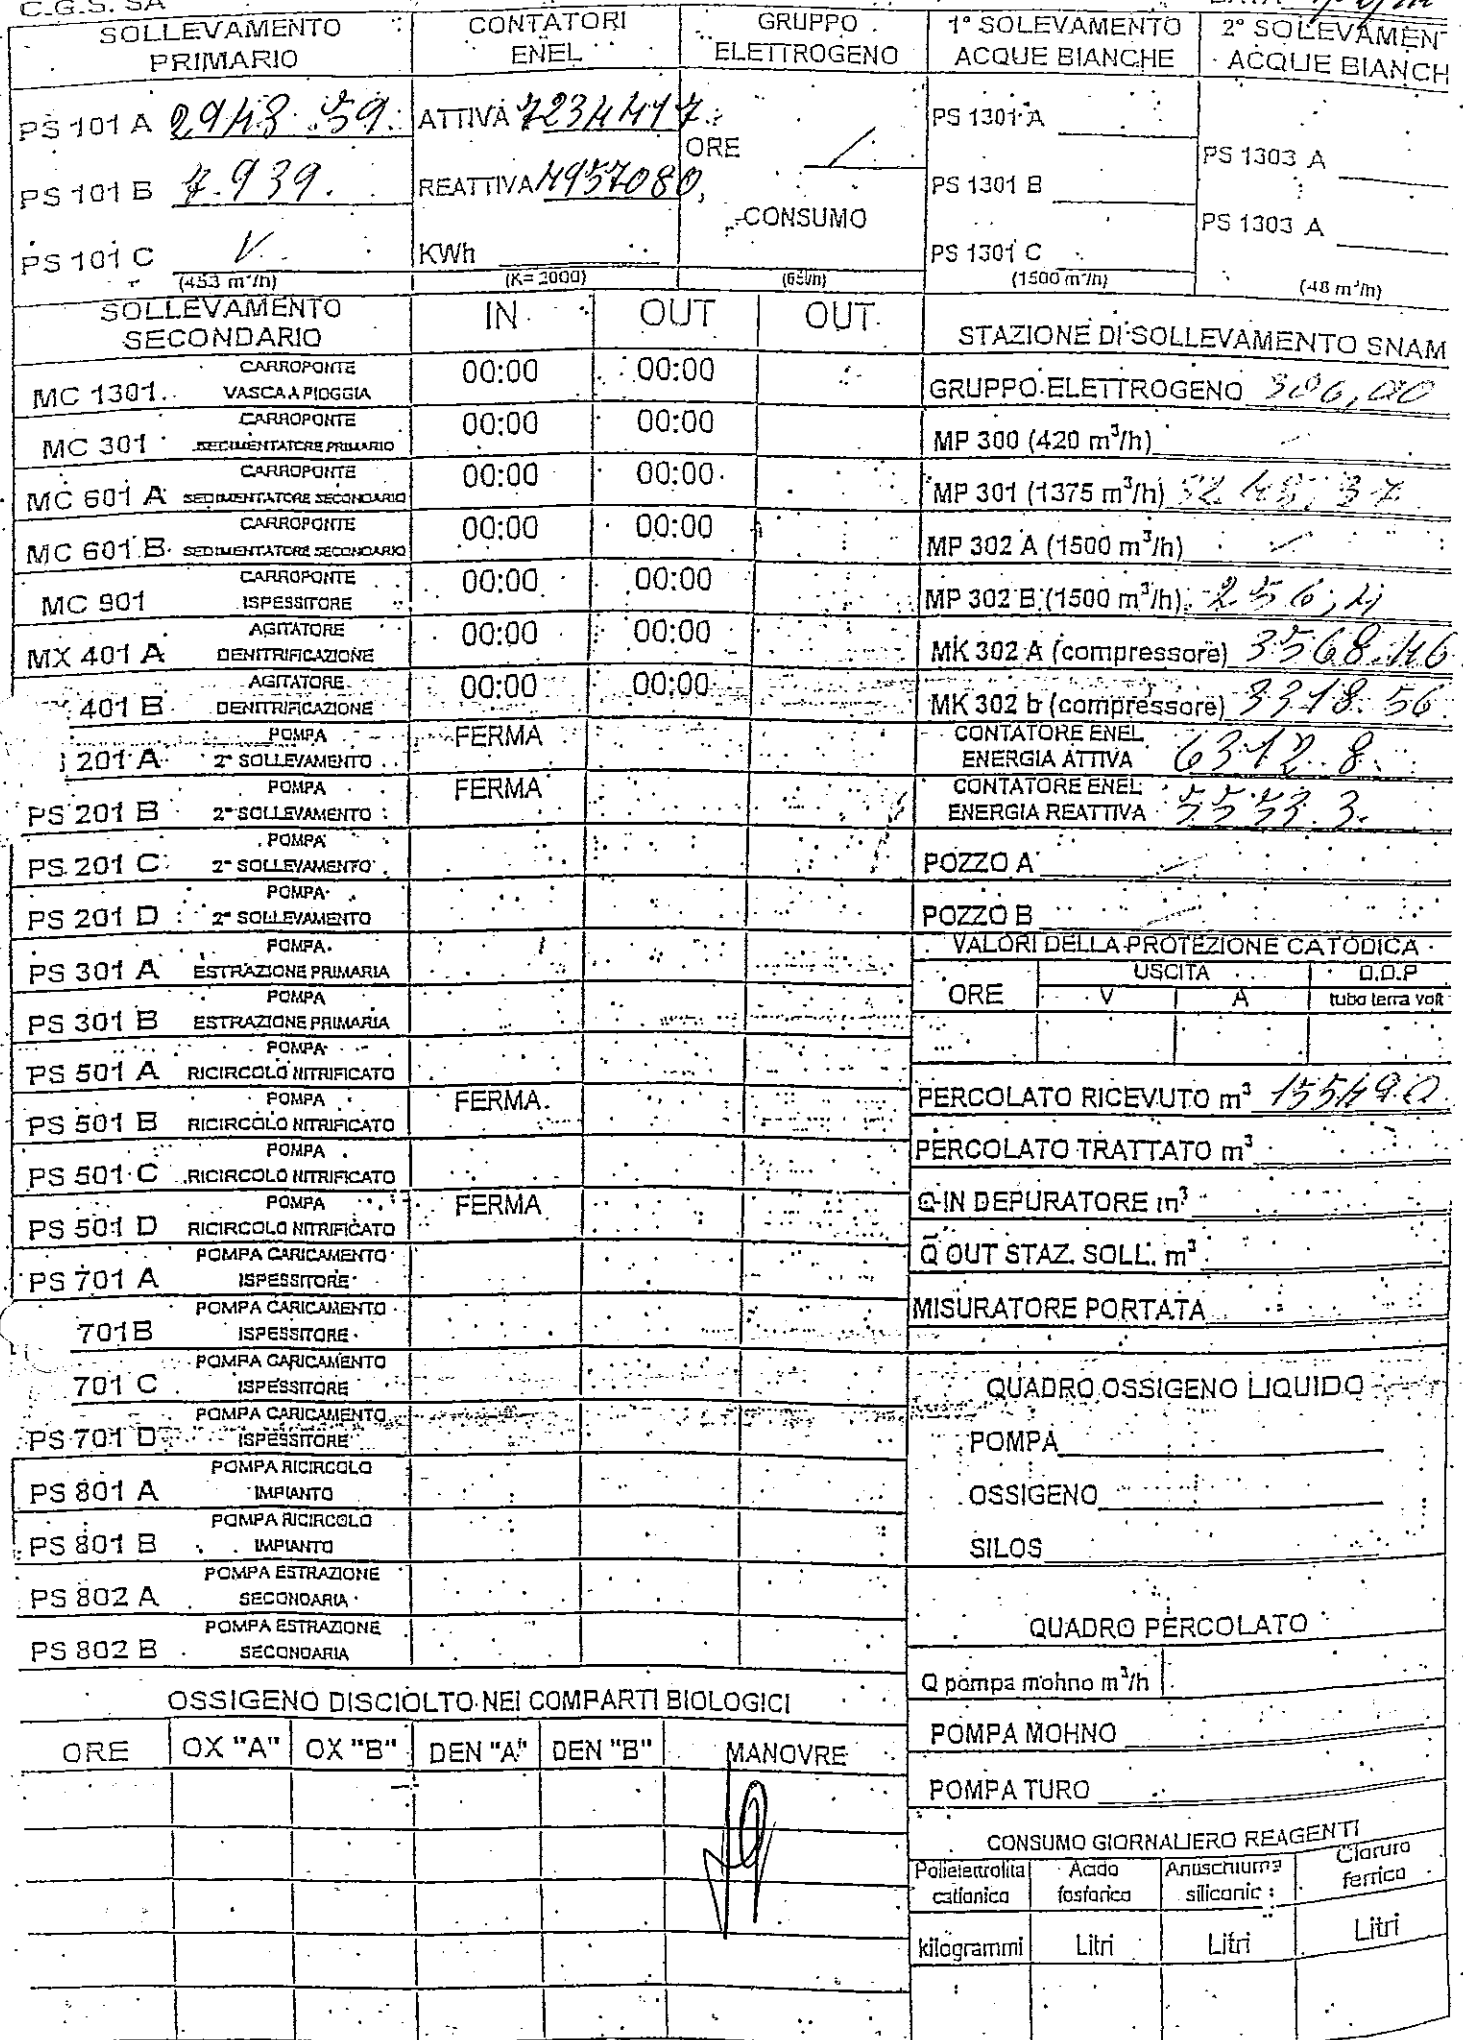 C.G.S. SA
DATA
SOLLEVAMENTO PRIMARIO
PS 101 A 2948.59.
PS 101 B 7.939.
PS 101 C
(453 m³/h)
CONTATORI ENEL
ATTIVA 7234417
REATTIVA 4957080,
KWh
(K= 2000)
GRUPPO ELETTROGENO
ORE /
CONSUMO
1° SOLEVAMENTO ACQUE BIANCHE
PS 1301 A
PS 1301 B
PS 1301 C
(1500 m³/h)
2° SOLEVAMEN
ACQUE BIANCH
PS 1303 A
PS 1303 A
(48 m³/h)
SOLLEVAMENTO SECONDARIO IN OUT OUT
MC 1301 CARROPONTE VASCA A PIOGGIA 00:00 00:00
MC 301 CARROPONTE SEDIMENTATORE PRIMARIO 00:00 00:00
MC 601 A CARROPONTE SEDIMENTATORE SECONDARIO 00:00 00:00
MC 601 B CARROPONTE SEDIMENTATORE SECONDARIO 00:00 00:00
MC 901 CARROPONTE ISPESSITORE 00:00 00:00
MX 401 A AGITATORE DENITRIFICAZIONE 00:00 00:00
401 B AGITATORE DENITRIFICAZIONE 00:00 00:00
201 A POMPA 2° SOLLEVAMENTO FERMA
PS 201 B POMPA 2° SOLLEVAMENTO FERMA
PS 201 C POMPA 2° SOLLEVAMENTO
PS 201 D POMPA 2° SOLLEVAMENTO
PS 301 A POMPA ESTRAZIONE PRIMARIA
PS 301 B POMPA ESTRAZIONE PRIMARIA
PS 501 A POMPA RICIRCOLO NITRIFICATO
PS 501 B POMPA RICIRCOLO NITRIFICATO FERMA
PS 501 C POMPA RICIRCOLO NITRIFICATO
PS 501 D POMPA RICIRCOLO NITRIFICATO FERMA
PS 701 A POMPA CARICAMENTO ISPESSITORE
701B POMPA CARICAMENTO ISPESSITORE
701 C POMPA CARICAMENTO ISPESSITORE
PS 701 D POMPA CARICAMENTO ISPESSITORE
PS 801 A POMPA RICIRCOLO IMPIANTO
PS 801 B POMPA RICIRCOLO IMPIANTO
PS 802 A POMPA ESTRAZIONE SECONDARIA
PS 802 B POMPA ESTRAZIONE SECONDARIA
OSSIGENO DISCIOLTO NEI COMPARTI BIOLOGICI
ORE OX "A" OX "B" DEN "A" DEN "B" MANOVRE
STAZIONE DI SOLLEVAMENTO SNAM
GRUPPO ELETTROGENO 306,00
MP 300 (420 m³/h)
MP 301 (1375 m³/h)
MP 302 A (1500 m³/h)
MP 302 B (1500 m³/h) 256,4
MK 302 A (compressore) 3568.46
MK 302 b (compressore) 3318.56
CONTATORE ENEL ENERGIA ATTIVA 6312.8
CONTATORE ENEL ENERGIA REATTIVA
POZZO A
POZZO B
VALORI DELLA PROTEZIONE CATODICA
ORE USCITA D.D.P
V A tubo terra volt
PERCOLATO RICEVUTO m³ 155490
PERCOLATO TRATTATO m³
Q IN DEPURATORE m³
Q OUT STAZ. SOLL. m³
MISURATORE PORTATA
QUADRO OSSIGENO LIQUIDO
POMPA
OSSIGENO
SILOS
QUADRO PERCOLATO
Q pompa mohno m³/h
POMPA MOHNO
POMPA TURO
CONSUMO GIORNALIERO REAGENTI
Polielettrolita cationica Acido fosforico Antischiuma siliconic Cloruro ferrico
kilogrammi Litri Litri Litri